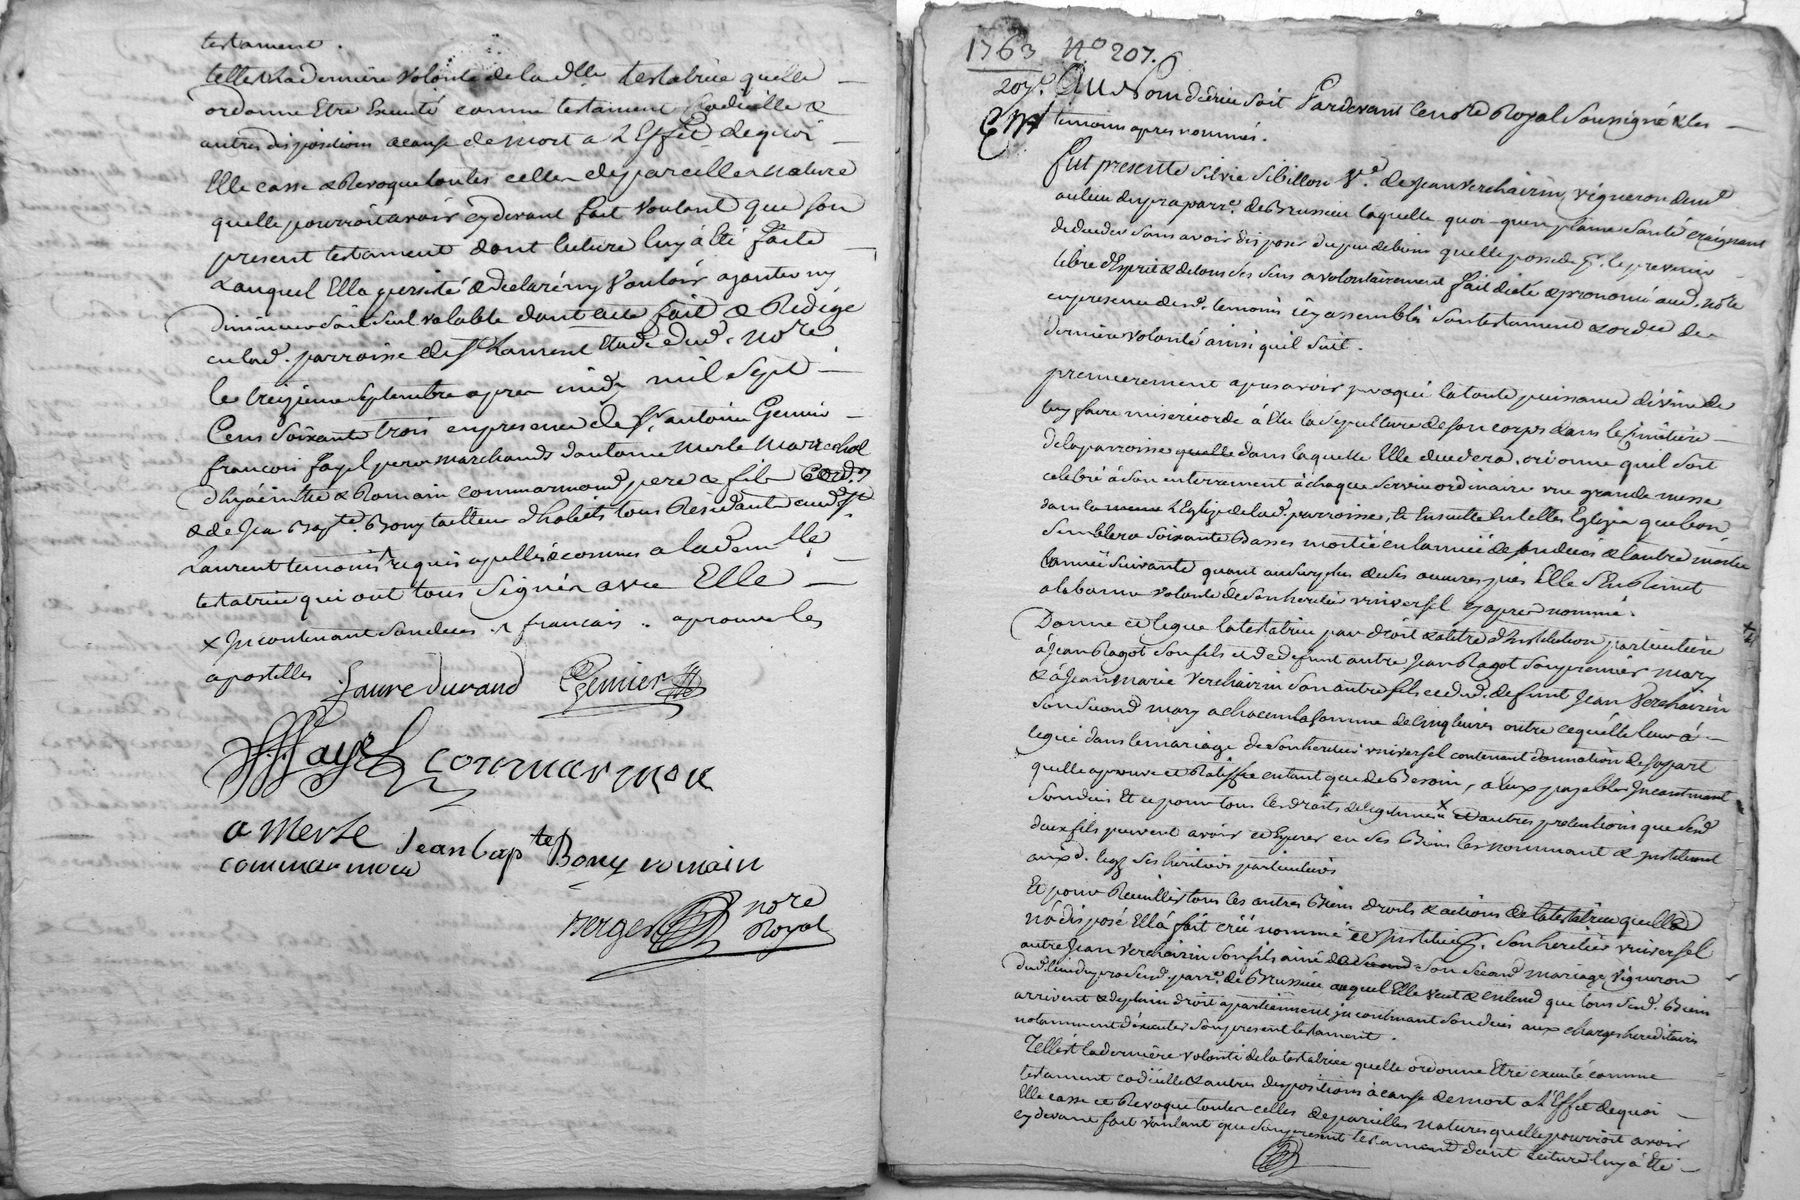 testament.
telle est la derniere volonté de la dlle testatrice quelle
ordonne etre Executé comme testament Codicille &
autres dispositions a cause de mort a L'Effet de quoi
Elle casse & Revoque toutes celles de pareilles nature
quelle pourroit avoir cy devant fait voulant que son
present testament dont lecture luy à été faite
auquel Elle a persisté & declaré ny vouloir ajouter ny
diminuer soit seul valable dont acte fait & Redigé
en lad. parroisse de st Laurent Etude dud. nore
le treizieme septembre apres midy mil sept
Cens soixante trois en presence de sr. antoine Gemier
francois fayel pere marchands d'antoine Merle Marechal
d'hyacinthe & Romain commarmond pere & fils Cord.rs
& de Jean Bapte. Bony tailleur d'habits tous Residants aud. st
Laurent temoins requis apellés & connus a la demlle
testatrice qui ont tous Signés avec Elle
x Incontinant son deces. francois. aprouvé les
apostilles
faure durand Gemier
ffayel commarmon
a Merle Jean bap te Bony romain
commarmond
Berger nore
Royal
1763 No 207.
207e. Au Nom de dieu soit Pardevant le nore Royal soussigné & les
temoins apres nommés.
fut presente silvie sibillon ve. de Jean Verchairin vigneron demt
au lieu du pra parre. de Brussieu laquelle quoi qu'en plaine santé craignant
de deceder sans avoir disposé du peu de biens quelle possede pr. le prevenir
libre d'Esprit & de tous ses sens a volontairement fait dicté & prononcé aud. nore
en presence desd. temoins icy assemblés son testament & ordre de
derniere volonté ainsi quil suit.
premierement apres avoir invoqué la toute puissance divine de
luy faire misericorde à Elu la sepulture de son corps dans le simitière
de la parroisse quelle dans laquelle Elle decedera, ordonne quil soit
celebré à son enterrement à chaque service ordinaire une grande messe
dans la meme L'Eglize de lad. parroisse, et Ensuitte En telles Eglize que bon
semblera soixante Basses moitié en l'année de son deces & l'autre moitié
l'année suivante quant au surplus de ses œuvres pies Elle s'En Remet
a la bonne volonté de son heritier universel cy apres nommé.
Donne et legue la testatrice par droit & à titre d'Institution particuliere
à Jean Ragot son fils et de defunt autre Jean Ragot son premier mary
& à Jean Marie Verchairin son autre fils et dud. defunt Jean Verchairin
son second mary a chacun la somme de cinq livres outre ce quélle leur à
legué dans le mariage de son heritier universel contenant donnation de sa part
quelle aprouve et Ratiffie en tant que de Besoin, a Eux payables Incontinant
son deces Et ce pour tous les droits de legitime x et autres pretentions que sesd.
deux fils peuvent avoir et Esperer en ses Biens les nommant & instituant
auxd. legs ses heritiers particuliers
Et pour Recueillir tous les autres Biens droits & actions de la testatrice quelle
n'a disposé Ella fait créé nommé et Institué pr. son heritier universel
autre Jean Verchairin son fils ainé de second son second mariage vigneron
dud. lieu du pra susd. parre. de Brussieu auquel Elle veut & entend que tous sesd. Biens
arrivent & de plein droit apartiennent incontinant son deces aux charges hereditaires
notamment d'executer son present testament.
Tell est la dernière volonté de la testatrice quelle ordonne Etre executé comme
testament codicille & autres dispositions à cause de mort a L'Effet de quoi
Elle casse et Revoque toutes celles de pareilles natures quelle pourroit avoir
cy devant fait voulant que son present testament dont lecture luy à Eté